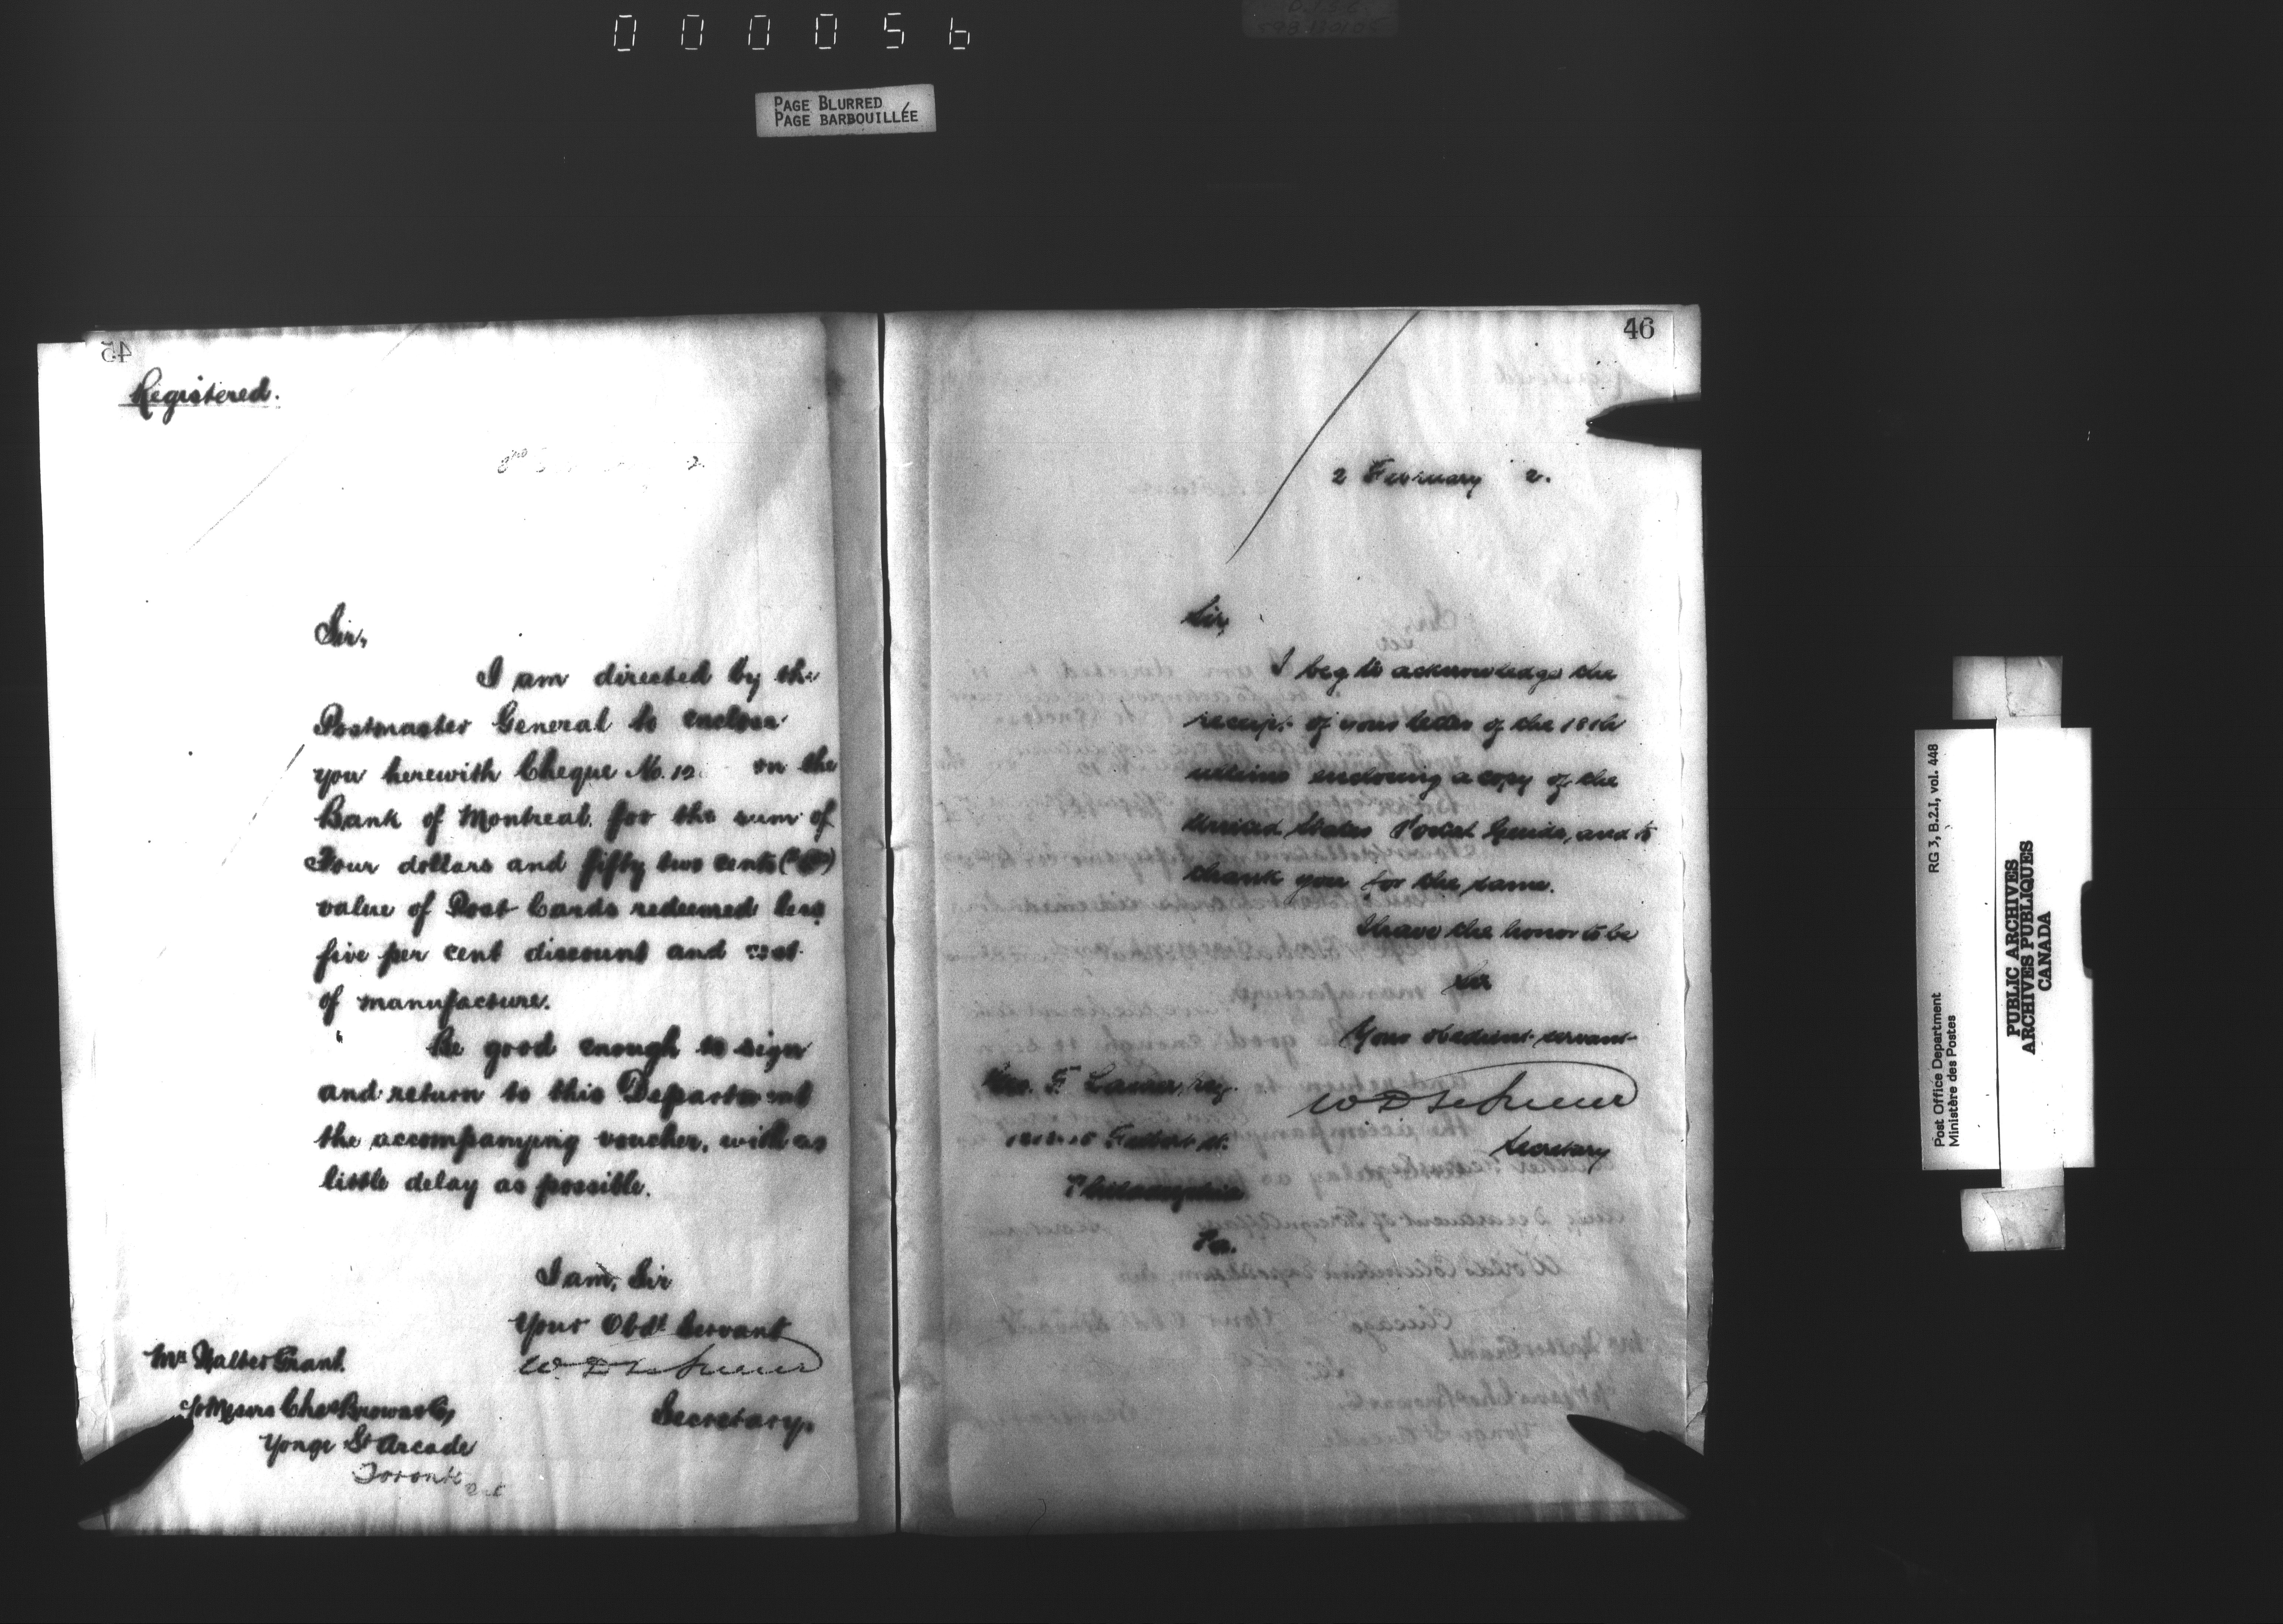 000056
PAGE BLURRED
PAGE BARBOUILLÉE
45
Registered.
2.
Sir,
I am directed by the
Postmaster General to enclose
you herewith Cheque No. 12 on the
Bank of Montreal for the sum of
Four dollars and fifty two cents
value of Post Cards redeemed less
five per cent discount and cost
of manufacture.
Be good enough to sign
and return to this Department
the accompanying voucher, with as
little delay as possible.
I am, Sir
Your Obdt Servant
Secretary.
Mr Walter Grant.
c/o Messrs Chas Brown & Co,
Yonge St Arcade
Toronto
46
2 February 2.
Sir,
I beg to acknowledge the
receipt of your letter of the 18th
ultimo enclosing a copy of the
United States Postal Guide, and to
thank you for the same.
I have the honor to be
Sir
Your obedient servant
Secretary
Geo. F. Lasher, Esq.
Filbert St.
Philadelphia
Pa.
Post Office Department RG 3, B.2.I, vol. 448
Ministère des Postes
PUBLIC ARCHIVES
ARCHIVES PUBLIQUES
CANADA